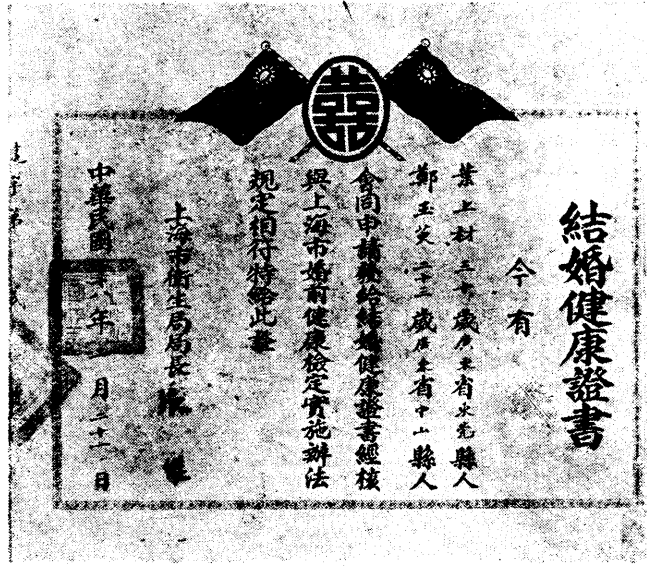 囍
結婚健康證書
今有
葉上材 三十歲廣東省文 縣人
鄭玉英 二十二歲廣東省中山縣人
會同申請發給結婚健康證書經核
與上海市婚前健康檢定實施辦法
規定相行特給此證
上海市衛生局局長
中華民國 十八年 月二十一日